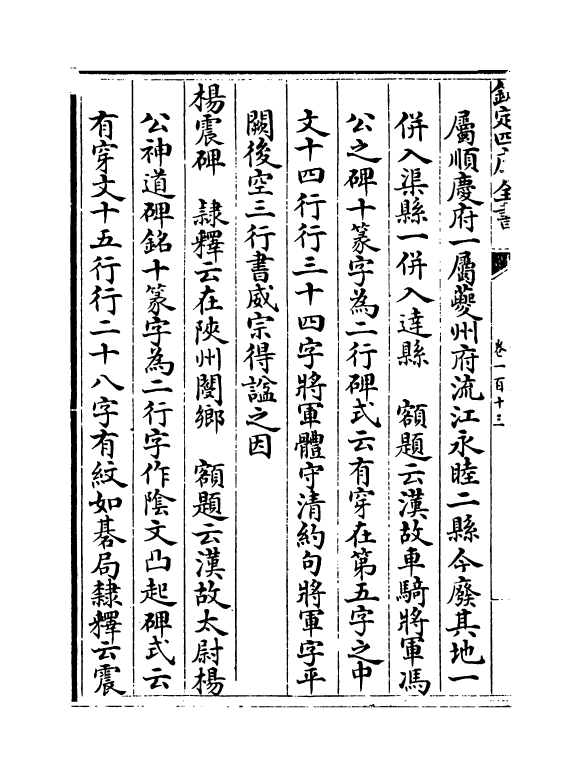 欽定四庫全書
卷一百十三
屬順慶府一屬夔州府流江永睦二縣今廢其地一
併入渠縣一併入達縣　額題云漢故車騎將軍馮
公之碑十篆字為二行碑式云有穿在第五字之中
文十四行行三十四字將軍體守清約句將軍字平
闕後空三行書威宗得諡之因
楊震碑　隸釋云在陝州閿鄉　額題云漢故太尉楊
公神道碑銘十篆字為二行字作陰文凸起碑式云
有穿文十五行行二十八字有紋如碁局隸釋云震